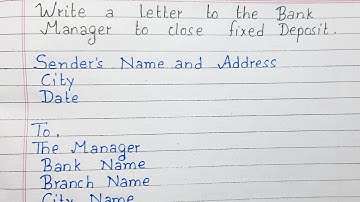 Write a letter to the Bank
Manager to close fixed Deposit.
Sender's Name and Address
City
Date
To,
The Manager
Bank Name
Branch Name
City Name